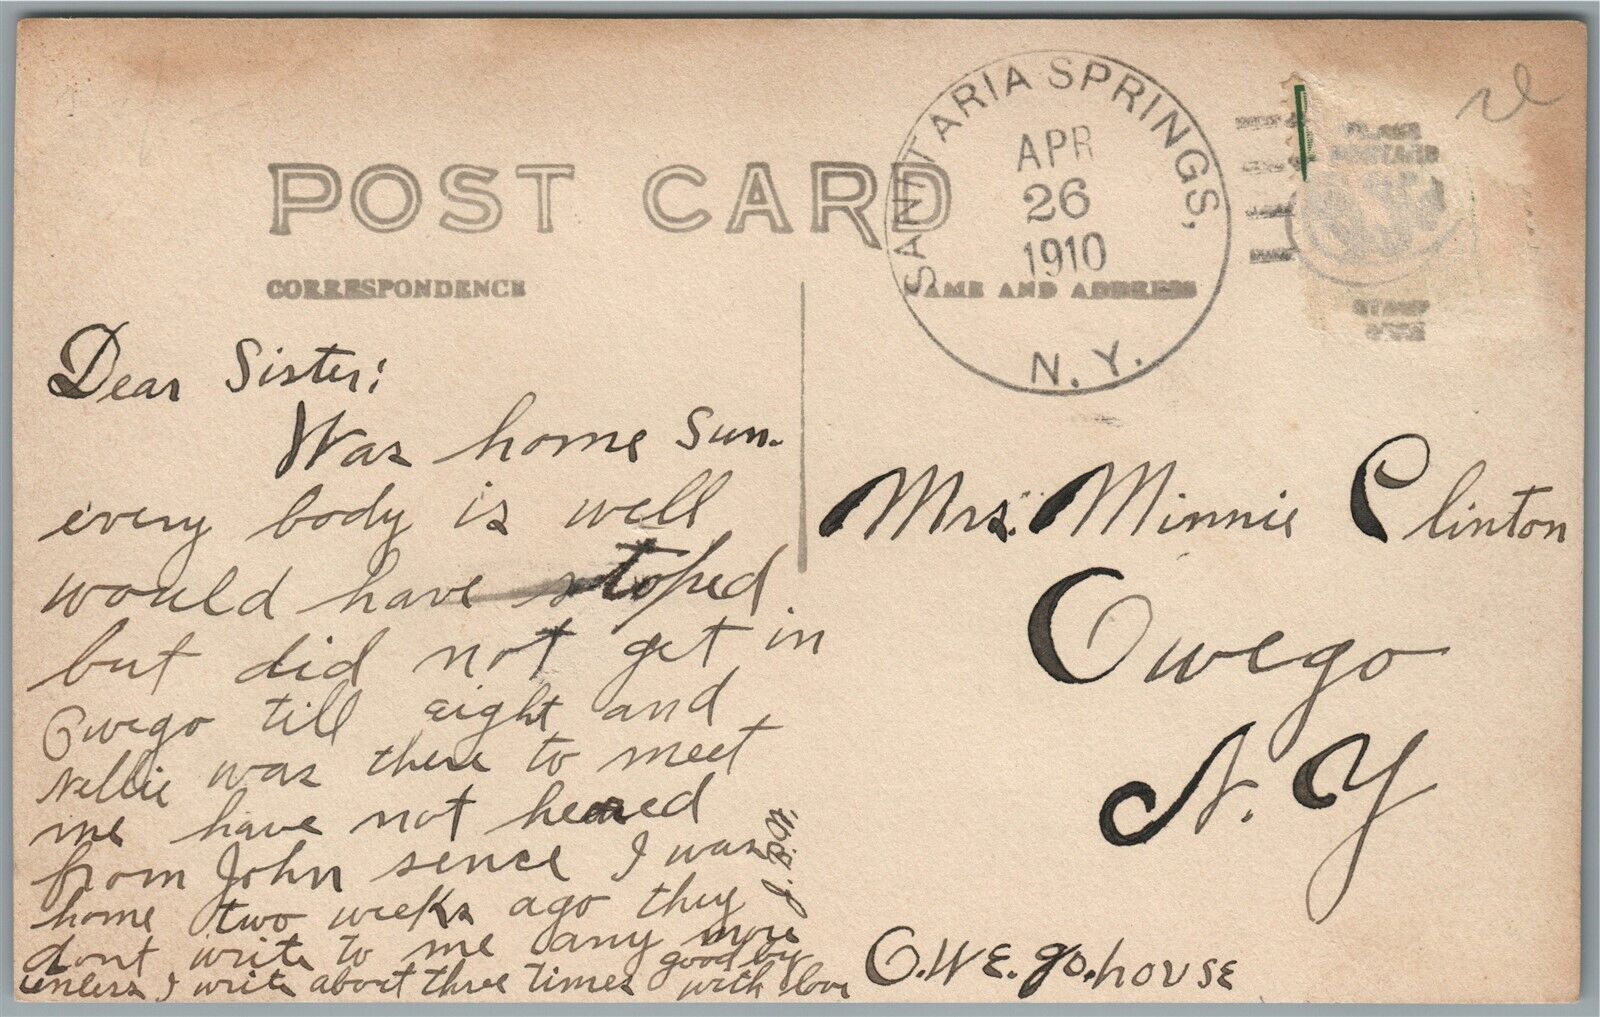 POST CARD
CORRESPONDENCE
NAME AND ADDRESS
SANITARIA SPRINGS,
APR
26
1910
N.Y.
PLACE
POSTAGE
STAMP
HERE
Dear Sister:
Was home Sun.
every body is well
would have stoped
but did not get in
Owego till eight and
Nellie was there to meet
me have not heared
from John sence I was
home two weeks ago they
dont write to me any more
unless I write about three times good by
with love
Mrs. Minnie Clinton
Owego
N.Y
O.WE.go.house